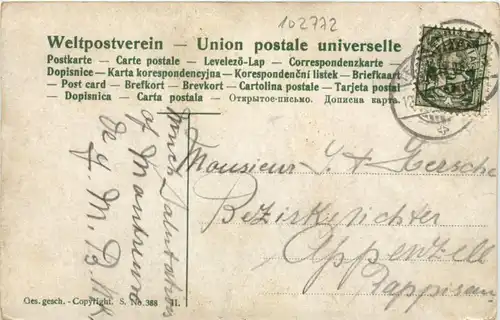 102772
Weltpostverein — Union postale universelle
Postkarte — Carte postale — Levelező-Lap — Correspondenzkarte
Dopisnice — Karta korespondencyjna — Korespondenční listek — Briefkaart
— Post card — Brefkort — Brevkort — Cartolina postale — Tarjeta postal
— Dopisnica — Carta postala — Открытое-письмо. Дописна карта.
Monsieur J. A.
Bezirksrichter
Appenzell
of
M. B.
Ges. gesch. - Copyright. S. No. 388 II.